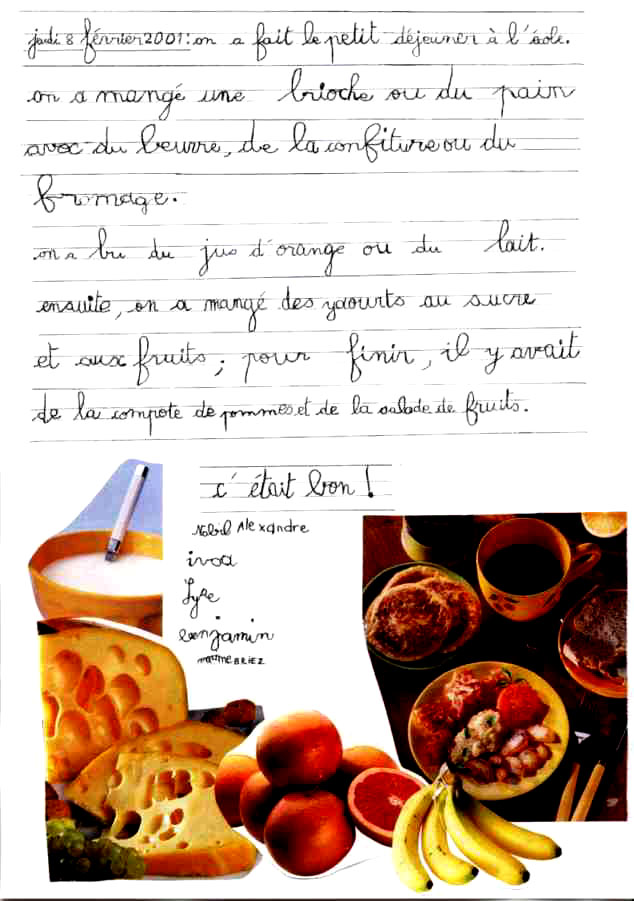 jeudi 8 février 2001: on a fait le petit déjeuner à l'école.
on a mangé une brioche ou du pain
avec du beurre, de la confiture ou du
fromage.
on a bu du jus d'orange ou du lait.
ensuite, on a mangé des yaourts au sucre
et aux fruits; pour finir, il y avait
de la compote de pommes et de la salade de fruits.
c'était bon!
Alexandre
benjamin
BRIEZ